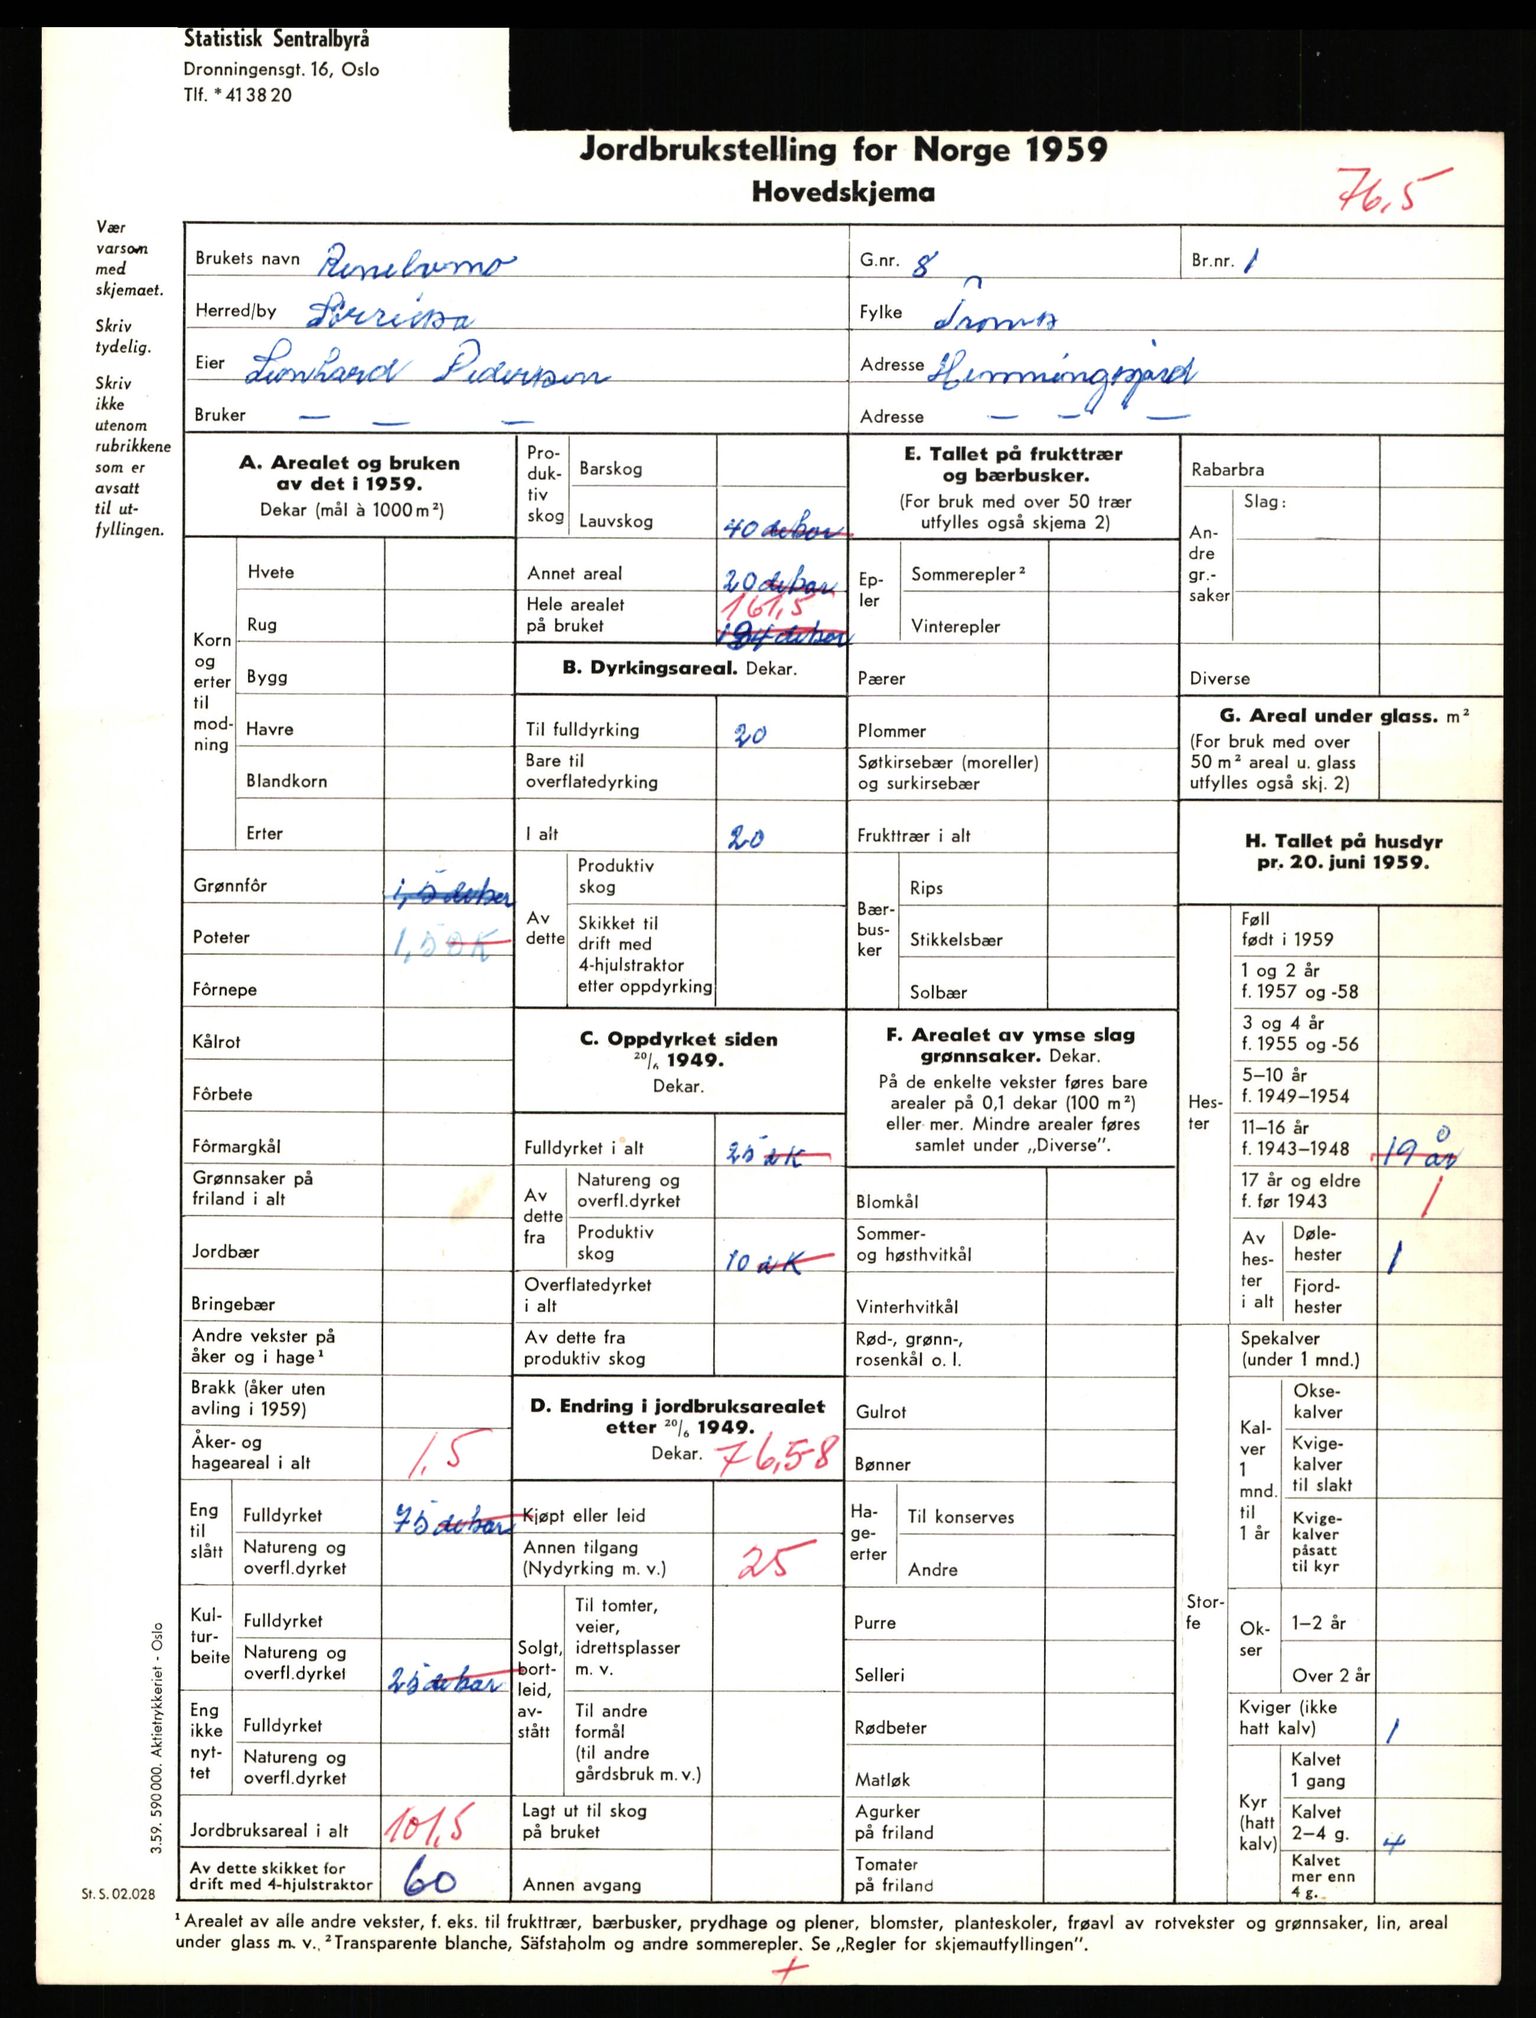 Statistisk Sentralbyrå
Dronningensgt. 16, Oslo
Tlf. * 41 38 20
Jordbrukstelling for Norge 1959
Hovedskjema
76,5
Vær
varsom
med
skjemaet.
Skriv
tydelig.
Skriv
ikke
utenom
rubrikkene
som er
avsatt
til ut-
fyllingen.
Brukets navn
G.nr. 8
Br.nr. 1
Herred/by Sørreisa
Fylke Troms
Eier Leonhard Pedersen
Adresse Hemmingsjord
Bruker — — —
Adresse — — —
A. Arealet og bruken
av det i 1959.
Dekar (mål à 1000 m²)
Korn
og
erter
til
mod-
ning
Hvete
Rug
Bygg
Havre
Blandkorn
Erter
Grønnfôr 1,5 dekar
Poteter 1,5 dK
Fôrnepe
Kålrot
Fôrbete
Fôrmargkål
Grønnsaker på
friland i alt
Jordbær
Bringebær
Andre vekster på
åker og i hage¹
Brakk (åker uten
avling i 1959)
Åker- og
hageareal i alt 1,5
Eng
til
slått
Fulldyrket 75 dekar
Natureng og
overfl.dyrket
Kul-
tur-
beite
Fulldyrket
Natureng og
overfl.dyrket 25 dekar
Eng
ikke
nyt-
tet
Fulldyrket
Natureng og
overfl.dyrket
Jordbruksareal i alt 101,5
Av dette skikket for
drift med 4-hjulstraktor 60
Pro-
duk-
tiv
skog
Barskog
Lauvskog 40 dekar
Annet areal 20 dekar
Hele arealet
på bruket 161,5
dekar
B. Dyrkingsareal. Dekar.
Til fulldyrking 20
Bare til
overflatedyrking
I alt 20
Av
dette
Produktiv
skog
Skikket til
drift med
4-hjulstraktor
etter oppdyrking
C. Oppdyrket siden
20/6 1949.
Dekar.
Fulldyrket i alt 25 dK
Av
dette
fra
Natureng og
overfl.dyrket
Produktiv
skog 10 dK
Overflatedyrket
i alt
Av dette fra
produktiv skog
D. Endring i jordbruksarealet
etter 20/6 1949.
Dekar. 76,5-8
Kjøpt eller leid
Annen tilgang
(Nydyrking m. v.) 25
Solgt,
bort-
leid,
av-
stått
Til tomter,
veier,
idrettsplasser
m. v.
Til andre
formål
(til andre
gårdsbruk m. v.)
Lagt ut til skog
på bruket
Annen avgang
E. Tallet på frukttrær
og bærbusker.
(For bruk med over 50 trær
utfylles også skjema 2)
Ep-
ler
Sommerepler²
Vinterepler
Pærer
Plommer
Søtkirsebær (moreller)
og surkirsebær
Frukttrær i alt
Bær-
bus-
ker
Rips
Stikkelsbær
Solbær
F. Arealet av ymse slag
grønnsaker. Dekar.
På de enkelte vekster føres bare
arealer på 0,1 dekar (100 m²)
eller mer. Mindre arealer føres
samlet under „Diverse”.
Blomkål
Sommer-
og høsthvitkål
Vinterhvitkål
Rød-, grønn-,
rosenkål o. l.
Gulrot
Bønner
Ha-
ge-
erter
Til konserves
Andre
Purre
Selleri
Rødbeter
Matløk
Agurker
på friland
Tomater
på friland
Rabarbra
An-
dre
gr.-
saker
Slag:
Diverse
G. Areal under glass. m²
(For bruk med over
50 m² areal u. glass
utfylles også skj. 2)
H. Tallet på husdyr
pr. 20. juni 1959.
Hes-
ter
Føll
født i 1959
1 og 2 år
f. 1957 og -58
3 og 4 år
f. 1955 og -56
5–10 år
f. 1949–1954
11–16 år
f. 1943–1948 19 år
17 år og eldre
f. før 1943 1
Av
hes-
ter
i alt
Døle-
hester 1
Fjord-
hester
Stor-
fe
Spekalver
(under 1 mnd.)
Kal-
ver
1
mnd.
til
1 år
Okse-
kalver
Kvige-
kalver
til slakt
Kvige-
kalver
påsatt
til kyr
Ok-
ser
1–2 år
Over 2 år
Kviger (ikke
hatt kalv) 1
Kyr
(hatt
kalv)
Kalvet
1 gang
Kalvet
2–4 g. 4
Kalvet
mer enn
4 g.
3.59. 590 000. Aktietrykkeriet - Oslo
St. S. 02.028
¹ Arealet av alle andre vekster, f. eks. til frukttrær, bærbusker, prydhage og plener, blomster, planteskoler, frøavl av rotvekster og grønnsaker, lin, areal
under glass m. v.. ² Transparente blanche, Säfstaholm og andre sommerepler. Se „Regler for skjemautfyllingen”.
+